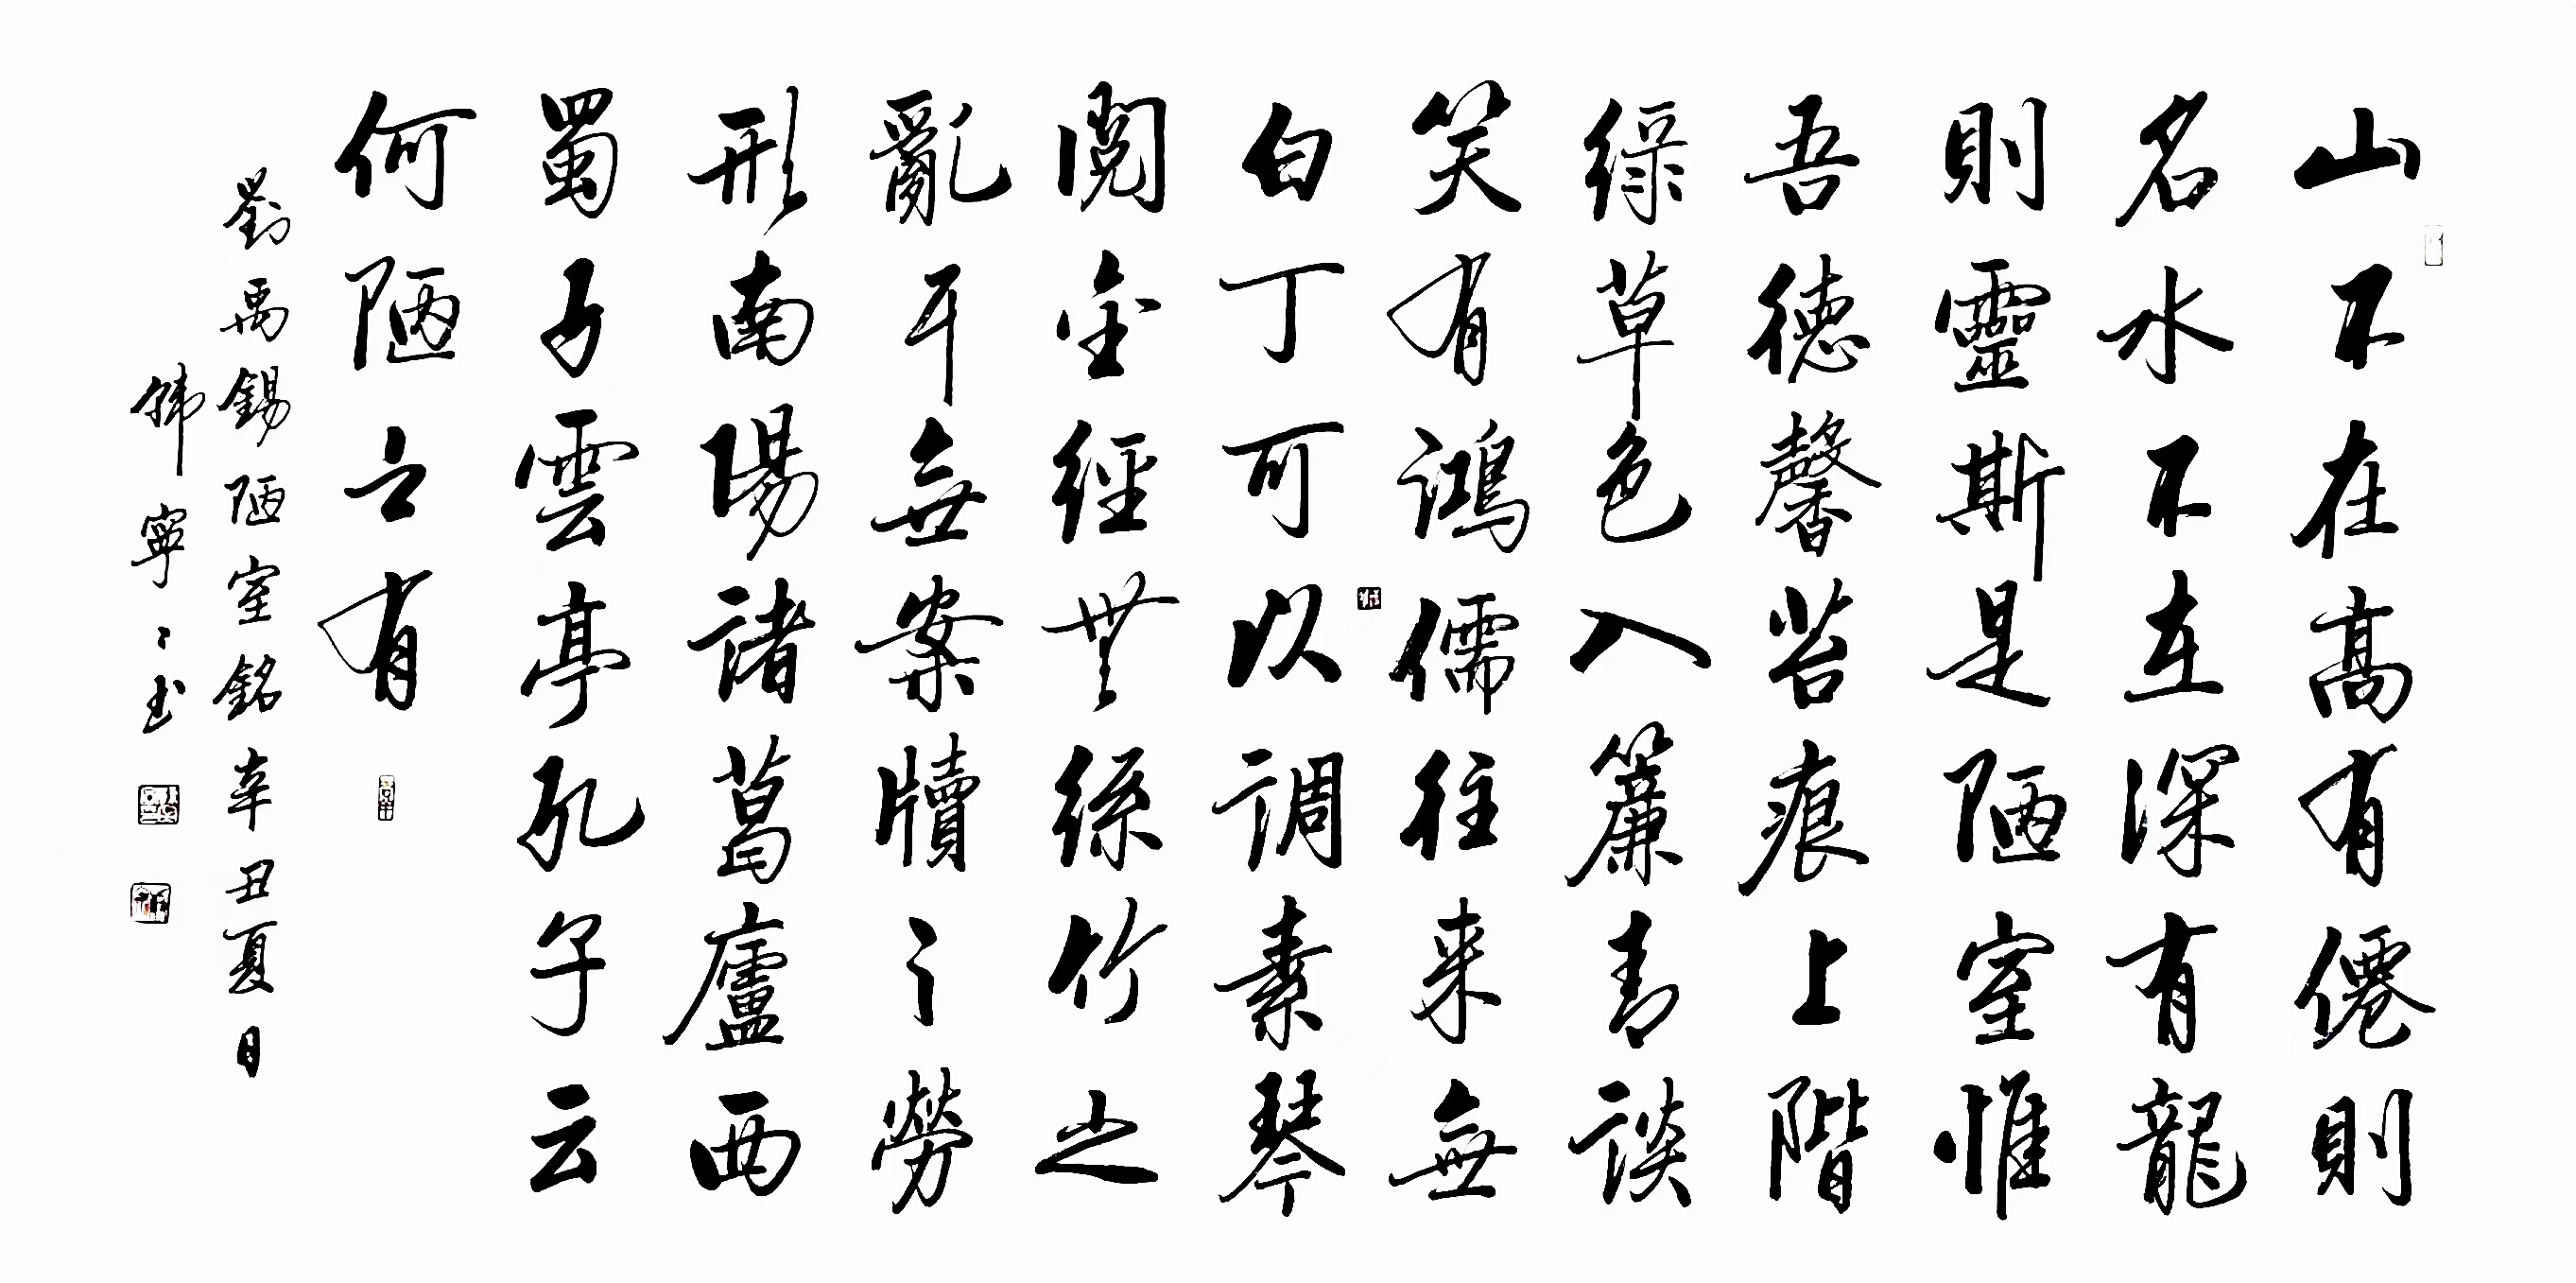 山不在高有僊則
名水不在深有龍
則靈斯是陋室惟
吾德馨苔痕上階
綠草色入簾青談
笑有鴻儒往来無
白丁可以調素琴
閱金經無絲竹之
亂耳無案牘之勞
形南陽諸葛廬西
蜀子雲亭孔子云
何陋之有
劉禹錫陋室銘辛丑夏日
韩寧〻书